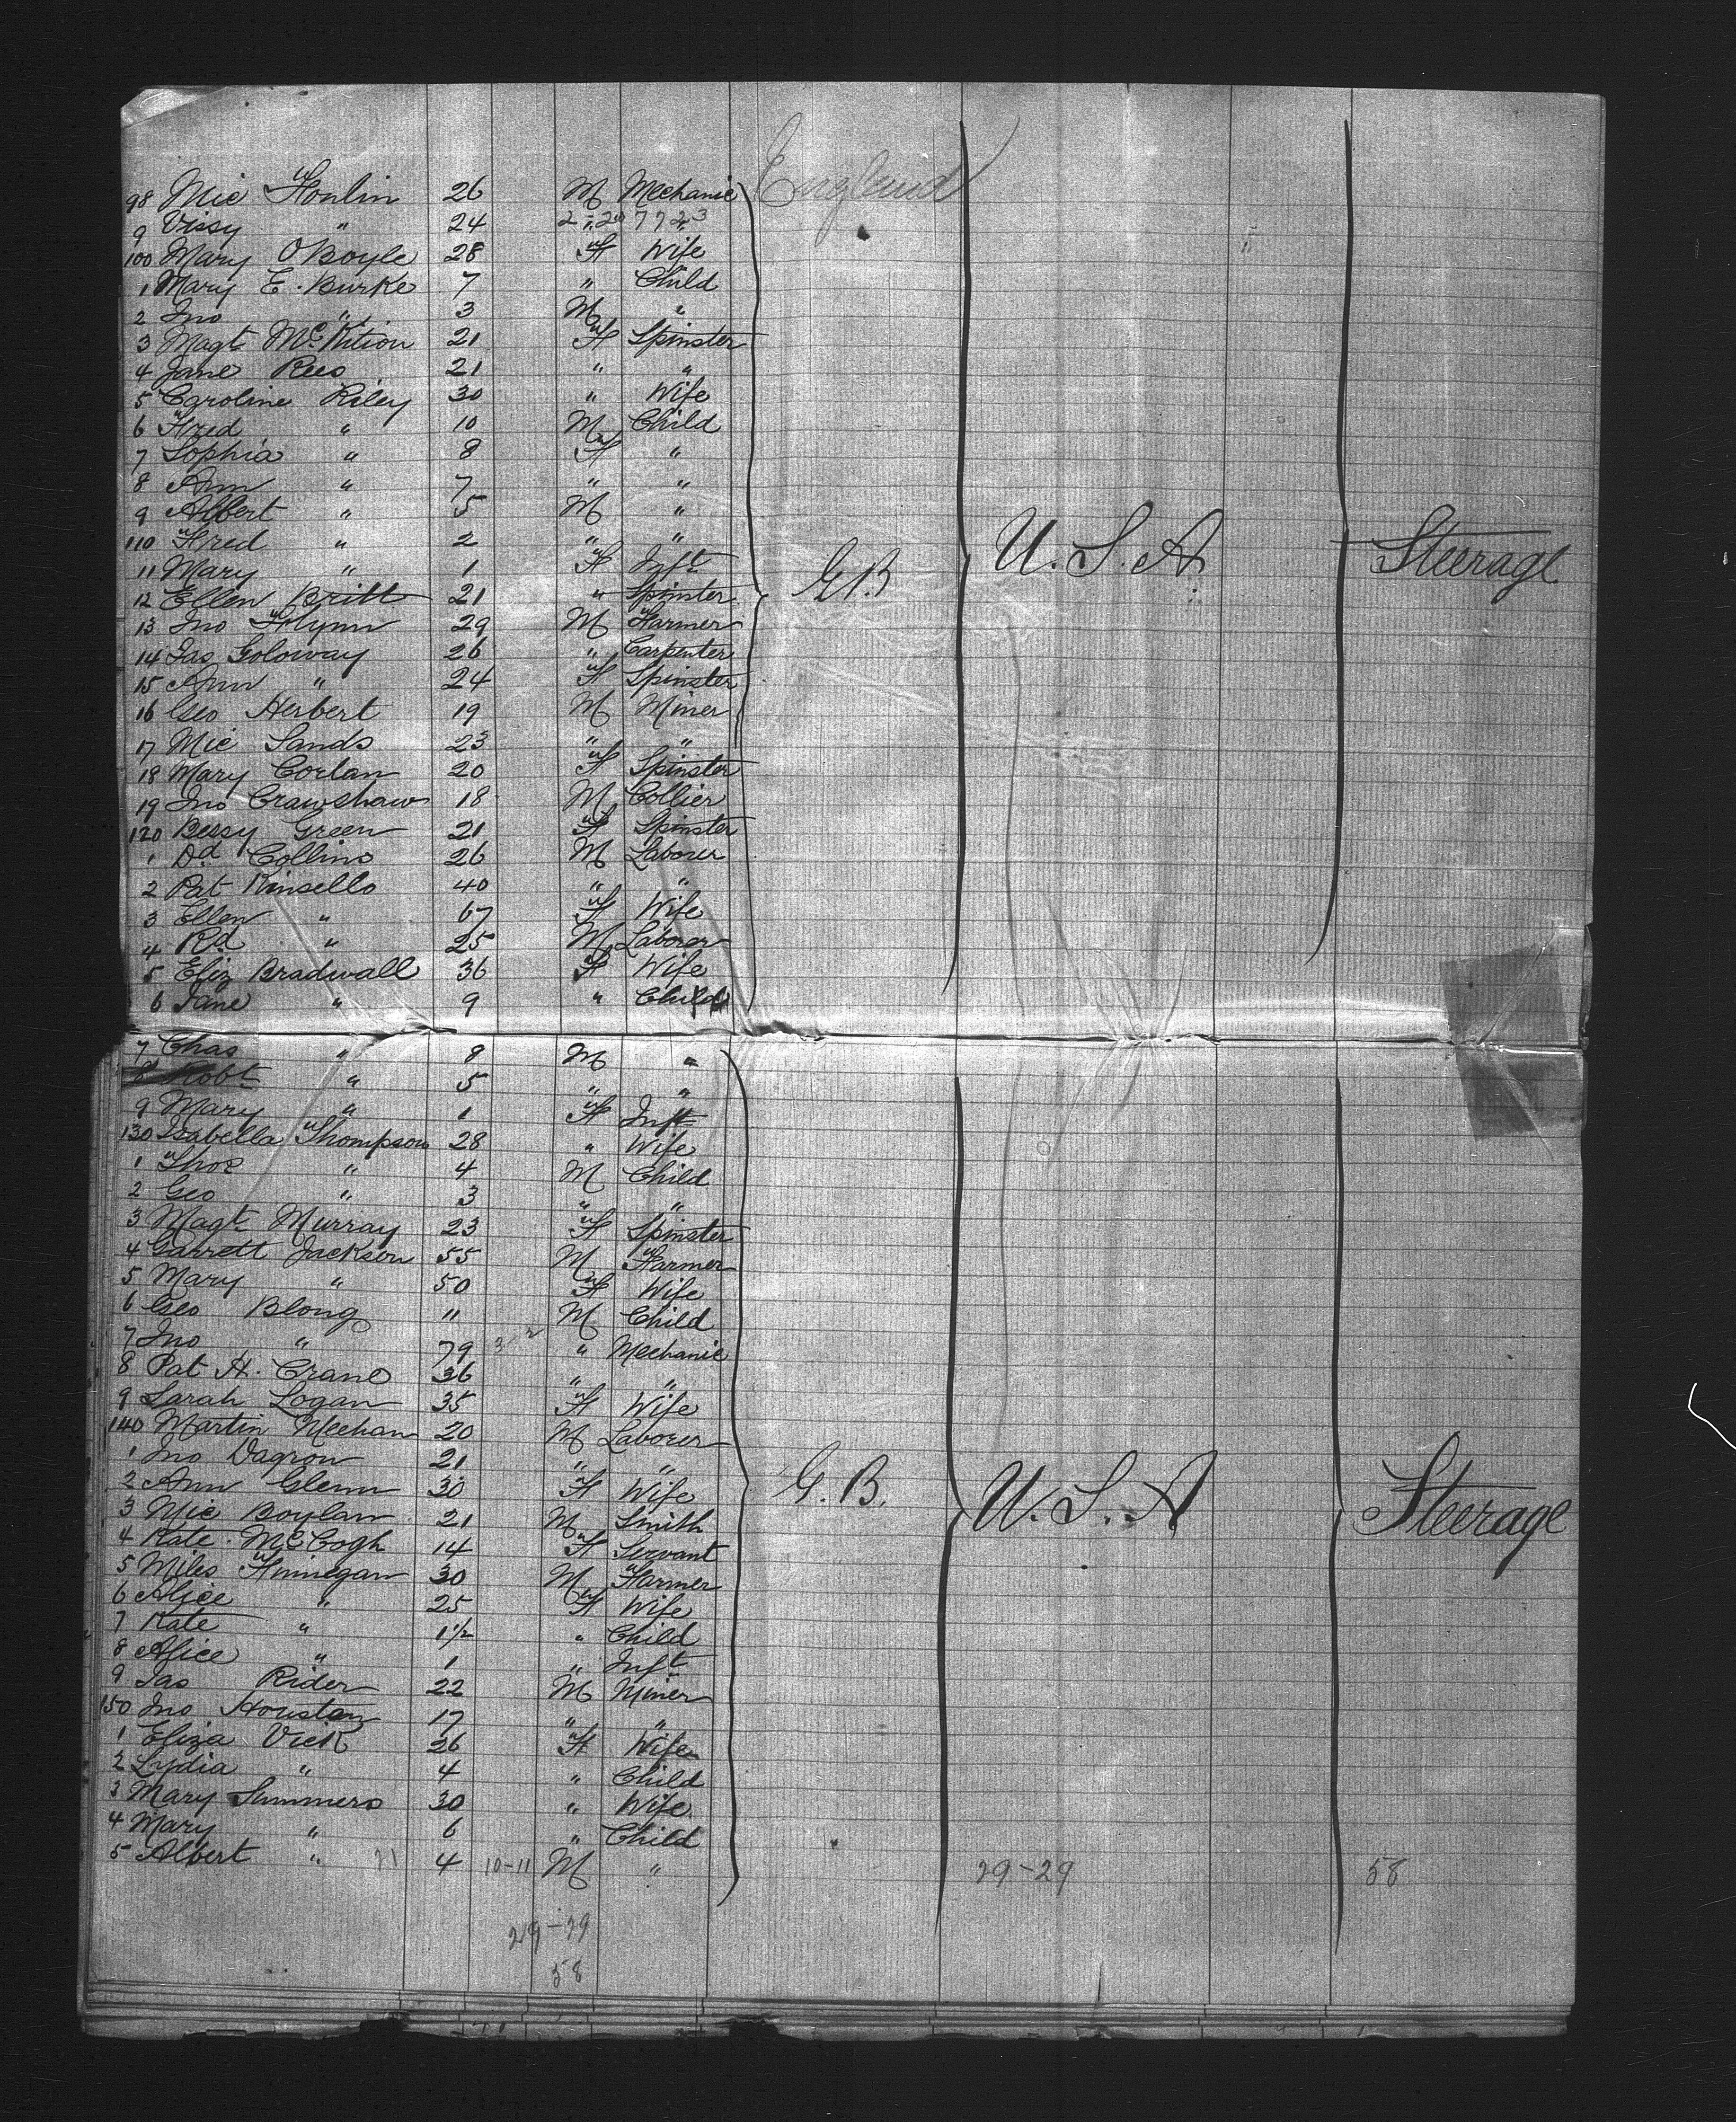 England
98 Mic Honlin 26 M Mechanic
9 Vissy " 24 "
100 Mary O'Boyle 28 F Wife
1 Mary E. Burke 7 " Child
2 Jno " 3 M "
3 Magt McKition 21 F Spinster
4 Jane Rees 21 " "
5 Caroline Riley 30 " Wife
6 Fred " 10 M Child
7 Sophia " 8 F "
8 Ann " 7 " "
9 Albert " 5 M "
110 Fred " 2 " "
11 Mary " 1 F Inft
12 Ellen Britt 21 " Spinster G.B U.S.A Steerage
13 Jno Flynn 29 M Farmer
14 Jas Goloway 26 " Carpenter
15 Ann " 24 F Spinster
16 Geo Herbert 19 M Miner
17 Mic Sands 23 " "
18 Mary Corlan 20 F Spinster
19 Jno Crawshaw 18 M Collier
120 Bessy Green 21 F Spinster
1 Dd Collins 26 M Laborer
2 Pat Kinsello 40 " "
3 Ellen " 67 F Wife
4 Rd " 25 M Laborer
5 Eliz Bradwall 36 F Wife
6 Jane " 9 " Child
7 Chas " 8 M "
8 Robt " 5 " "
9 Mary " 1 F Inft
130 Isabella Thompson 28 " Wife
1 Thos " 4 M Child
2 Geo " 3 " "
3 Magt Murray 23 F Spinster
4 Garrett Jackson 55 M Farmer
5 Mary " 50 F Wife
6 Geo Blong 11 M Child
7 Jno " 79 " Mechanic
8 Pat H. Crane 36 " "
9 Sarah Logan 35 F Wife
140 Martin Meehan 20 M Laborer
1 Jno Dagron 21 " "
2 Ann Glenn 30 F Wife G.B. U.S.A Steerage
3 Mic Boylan 21 M Smith
4 Kate McCogh 14 F Servant
5 Miles Finnegan 30 M Farmer
6 Alice " 25 F Wife
7 Kate " 1½ " Child
8 Alice " 1 " Inft
9 Jas Rider 22 M Miner
150 Jno Houstan 17 " "
1 Eliza Vick 26 F Wife
2 Lydia " 4 " Child
3 Mary Summers 30 " Wife
4 Mary " 6 " Child
5 Albert " 4 10-11 M " 29-29 58
29-29
58